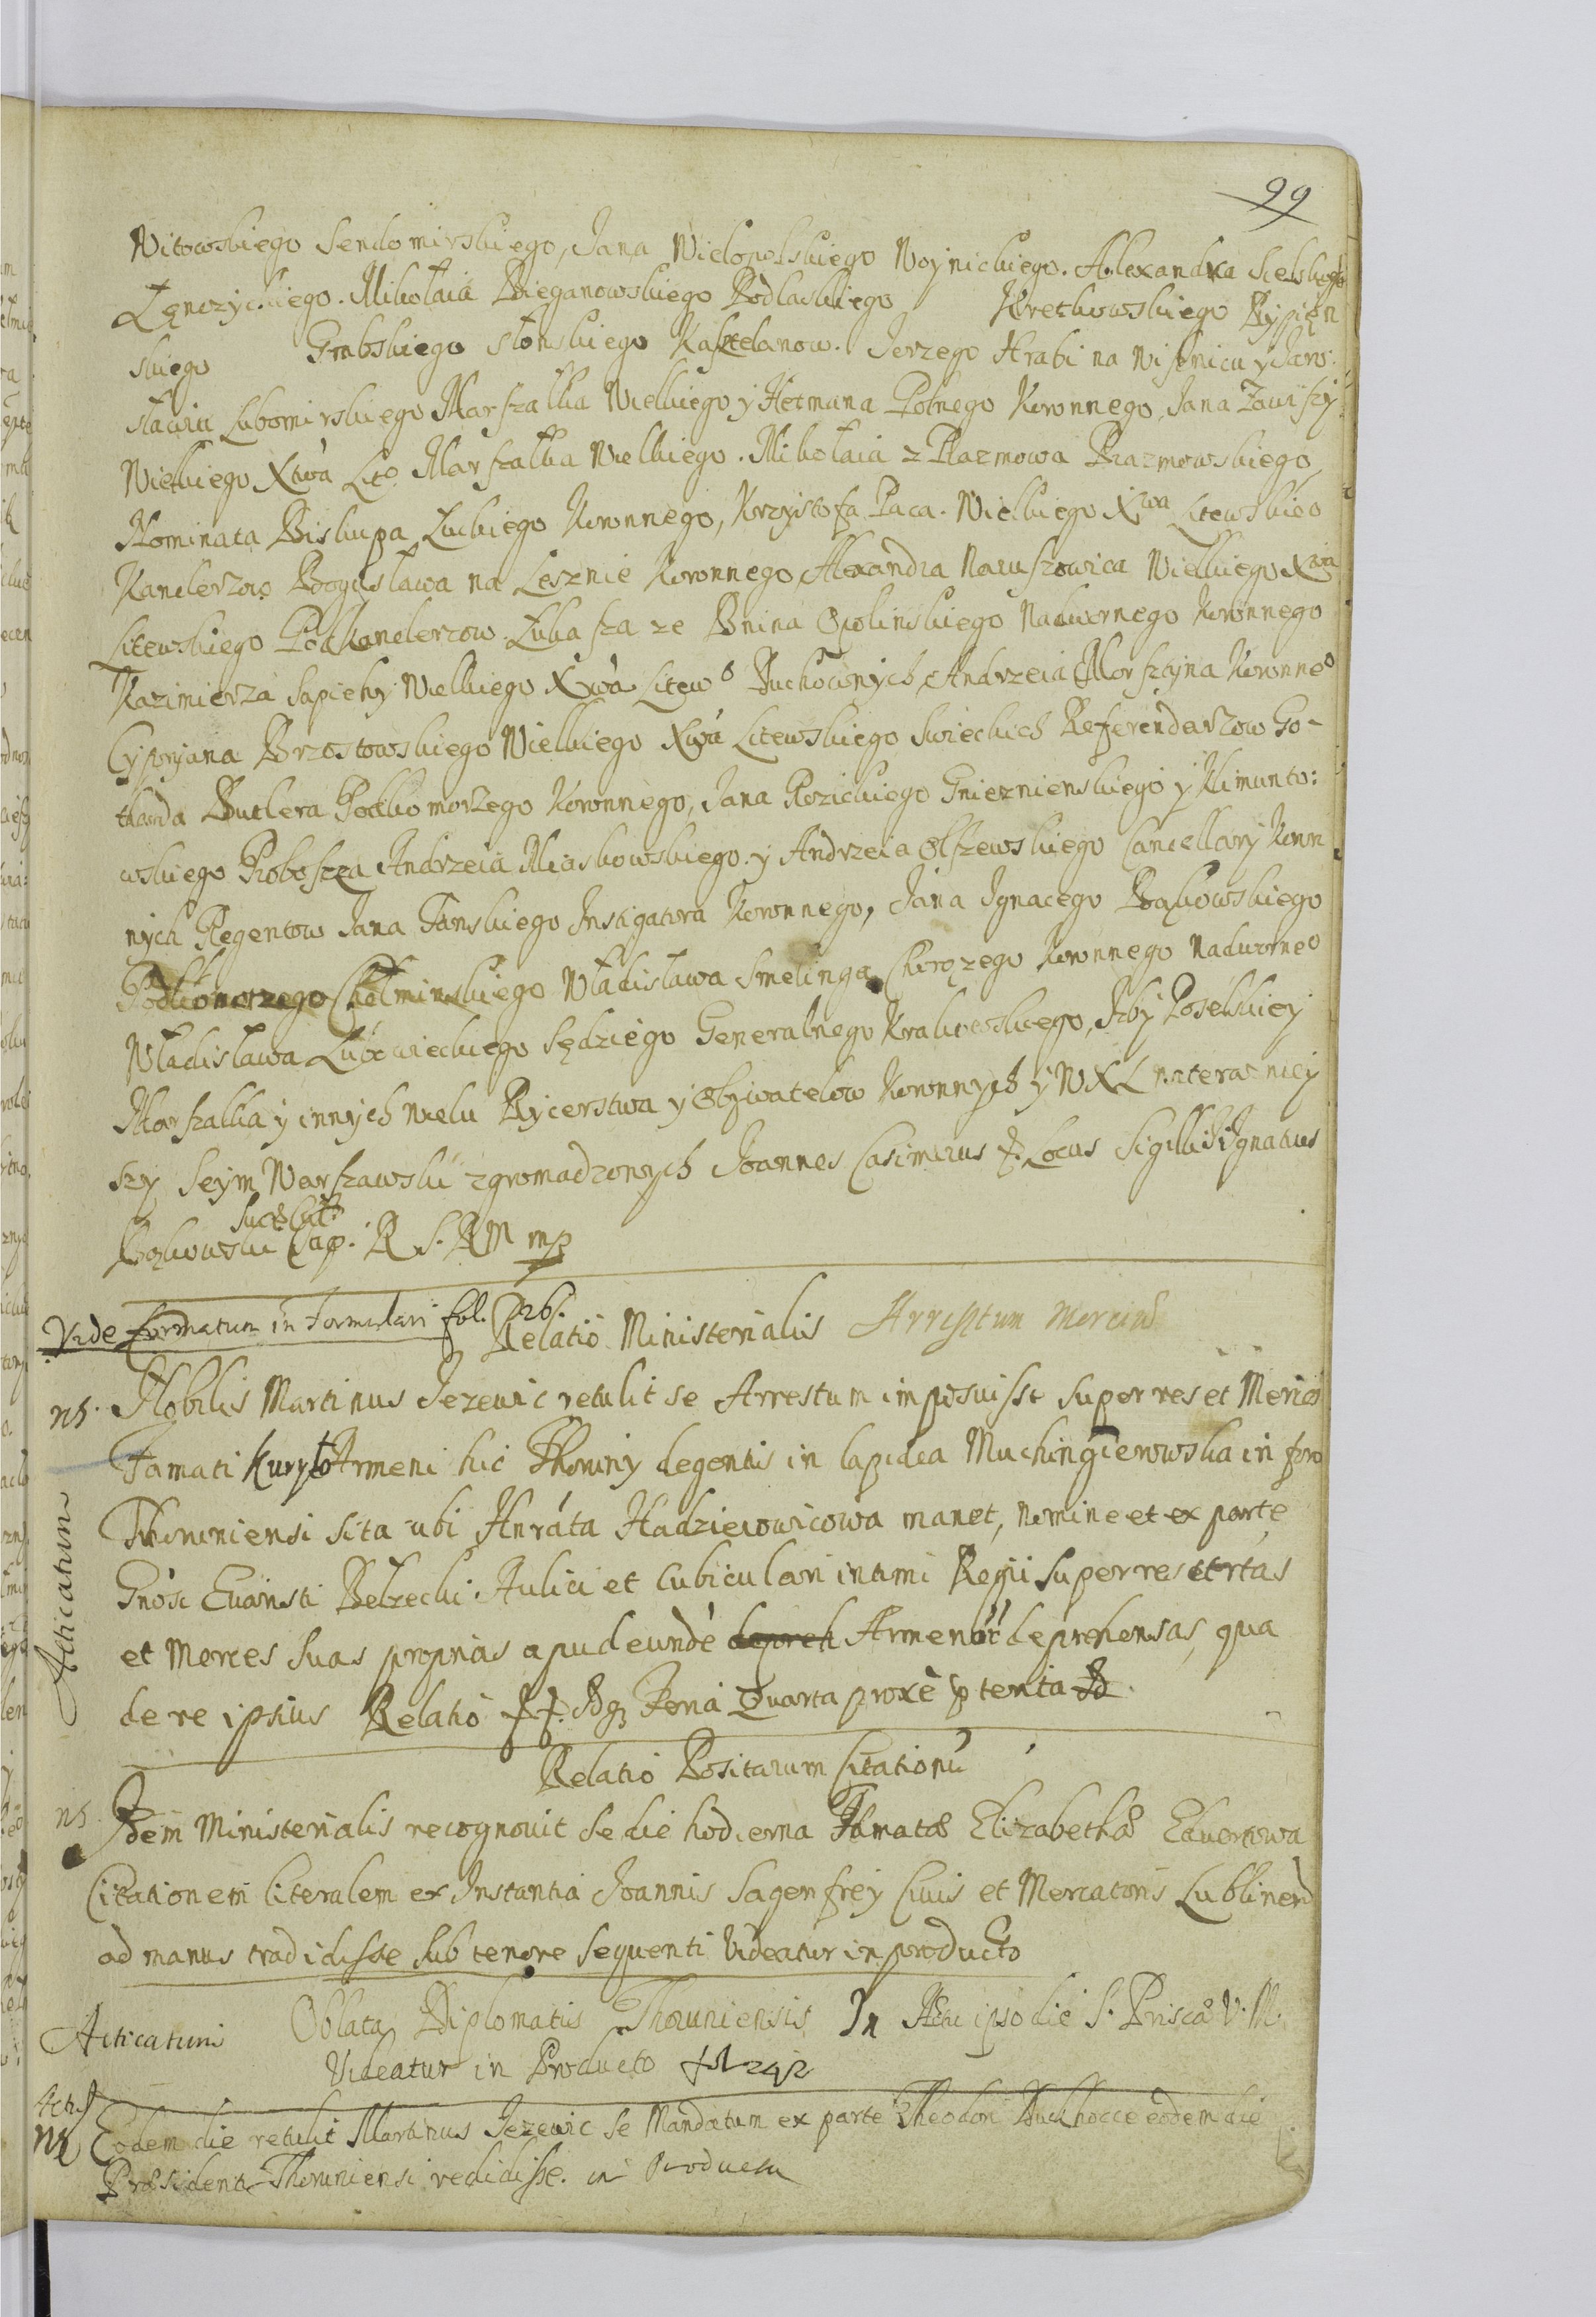 99
Witowskiego Sendomirskiego, Jana Wielopolskiego Woynickiego. Alexandra Sielskiego
Łęnczyckiego. Mikołaia Bieganowskiego Podlaskiego Kretkowskiego Rypięn
skiego Grabskiego Słonskiego Kasztelanow. Jerzego Hrabi na Wisniczu y Jaro:
sławiu Lubomirskiego Marszałka Wielkiego y Hetmana Polnego Koronnego, Jana Zawiszy
Wielkiego Xtwa Lito Marszałka Wielkiego. Mikołaia z Prazmowa Prazmowskiego
Nominata Biskupa Łuckiego Koronnego, Krzysztofa Paca. Wielkiego Xtwa Litewskieo
Kanclerzow Bogusława na Lesznie Koronnego, Alexandra Naruszowica Wielkiego Xtwa
Litewskiego Podkanclerzow. Łukasza ze Bnina Opolinskiego Nadwornego Koronnego
Kazimierza Sapiehy Wielkiego Xtwa Litewo Duchownych, Andrzeia Morsztyna Koronneo
Cypryana Brzostowskiego Wielkiego Xtwa Litewskiego Swieckich Referendarzow Go-
tharda Butlera Podkomorzego Koronnego, Jana Rozickiego Gnieznienskiego y Klimunto:
wskiego Proboszcza Andrzeia Miaskowskiego. y Andrzeia Olszewskiego Cancellary Koron
nych Regentow Jana Tanskiego Instigatora Koronnego, Jana Ignacego Bąkowskiego
Podkomorzego Chełminskiego Władisława Smelinga Chorązego Koronnego Nadworneo
Władisława Lubowieckiego Sędziego Generalnego Krakowskiego, Izby Poselskiey
Marszałka y innych wielu Rycerstwa y Obywatelow Koronnych y W X L na terazniey
szy Seym Warszawski zgromadzonych Joannes Casimirus R. Locus Sigilli Ignatius
Bąkowski Cap. R S. R M mp
Vide formatum in formulari fol. 26.
Relatio Ministerialis Arrestum Mercium
ns. Nobilis Martinus Jezewic retulit se Arrestum imposuisse super res et Merces
Famati Kuryło Armeni hic Thoruny degentis in lapidea Muchingierowska in foro
Thoruniensi sita ubi Anrata Hadziewowicowa manet, nomine et ex parte
Gnosi Euaristi Belzecki Aulici et Cubiculari intimi Regii super res certas
et Merces suas proprias apud eunde depreh Armenu deprehensas, qua
de re ipsius Relatio Feria Quarta proxe
Acticatum
Relatio Positarum Citationu
ns. Idem Ministerialis recognouit se die hodierna Famatæ Elizabethæ Eduertowa
Citationem literalem ex Instantia Joannis Sagenfrey Ciuis et Mercatoris Lublinen
ad manus tradidisse sub tenore sequenti Videatur in producto
Acticatum Oblata Diplomatis Thoruniensis In Actu ipso die S. Priscæ V. M.
Videatur in Producto
Act.
ns Eodem die retulit Martinus Jezewic se Mandatum ex parte Theodori eodem die
Præsidenti Thoruniensi redidisse. in Producto